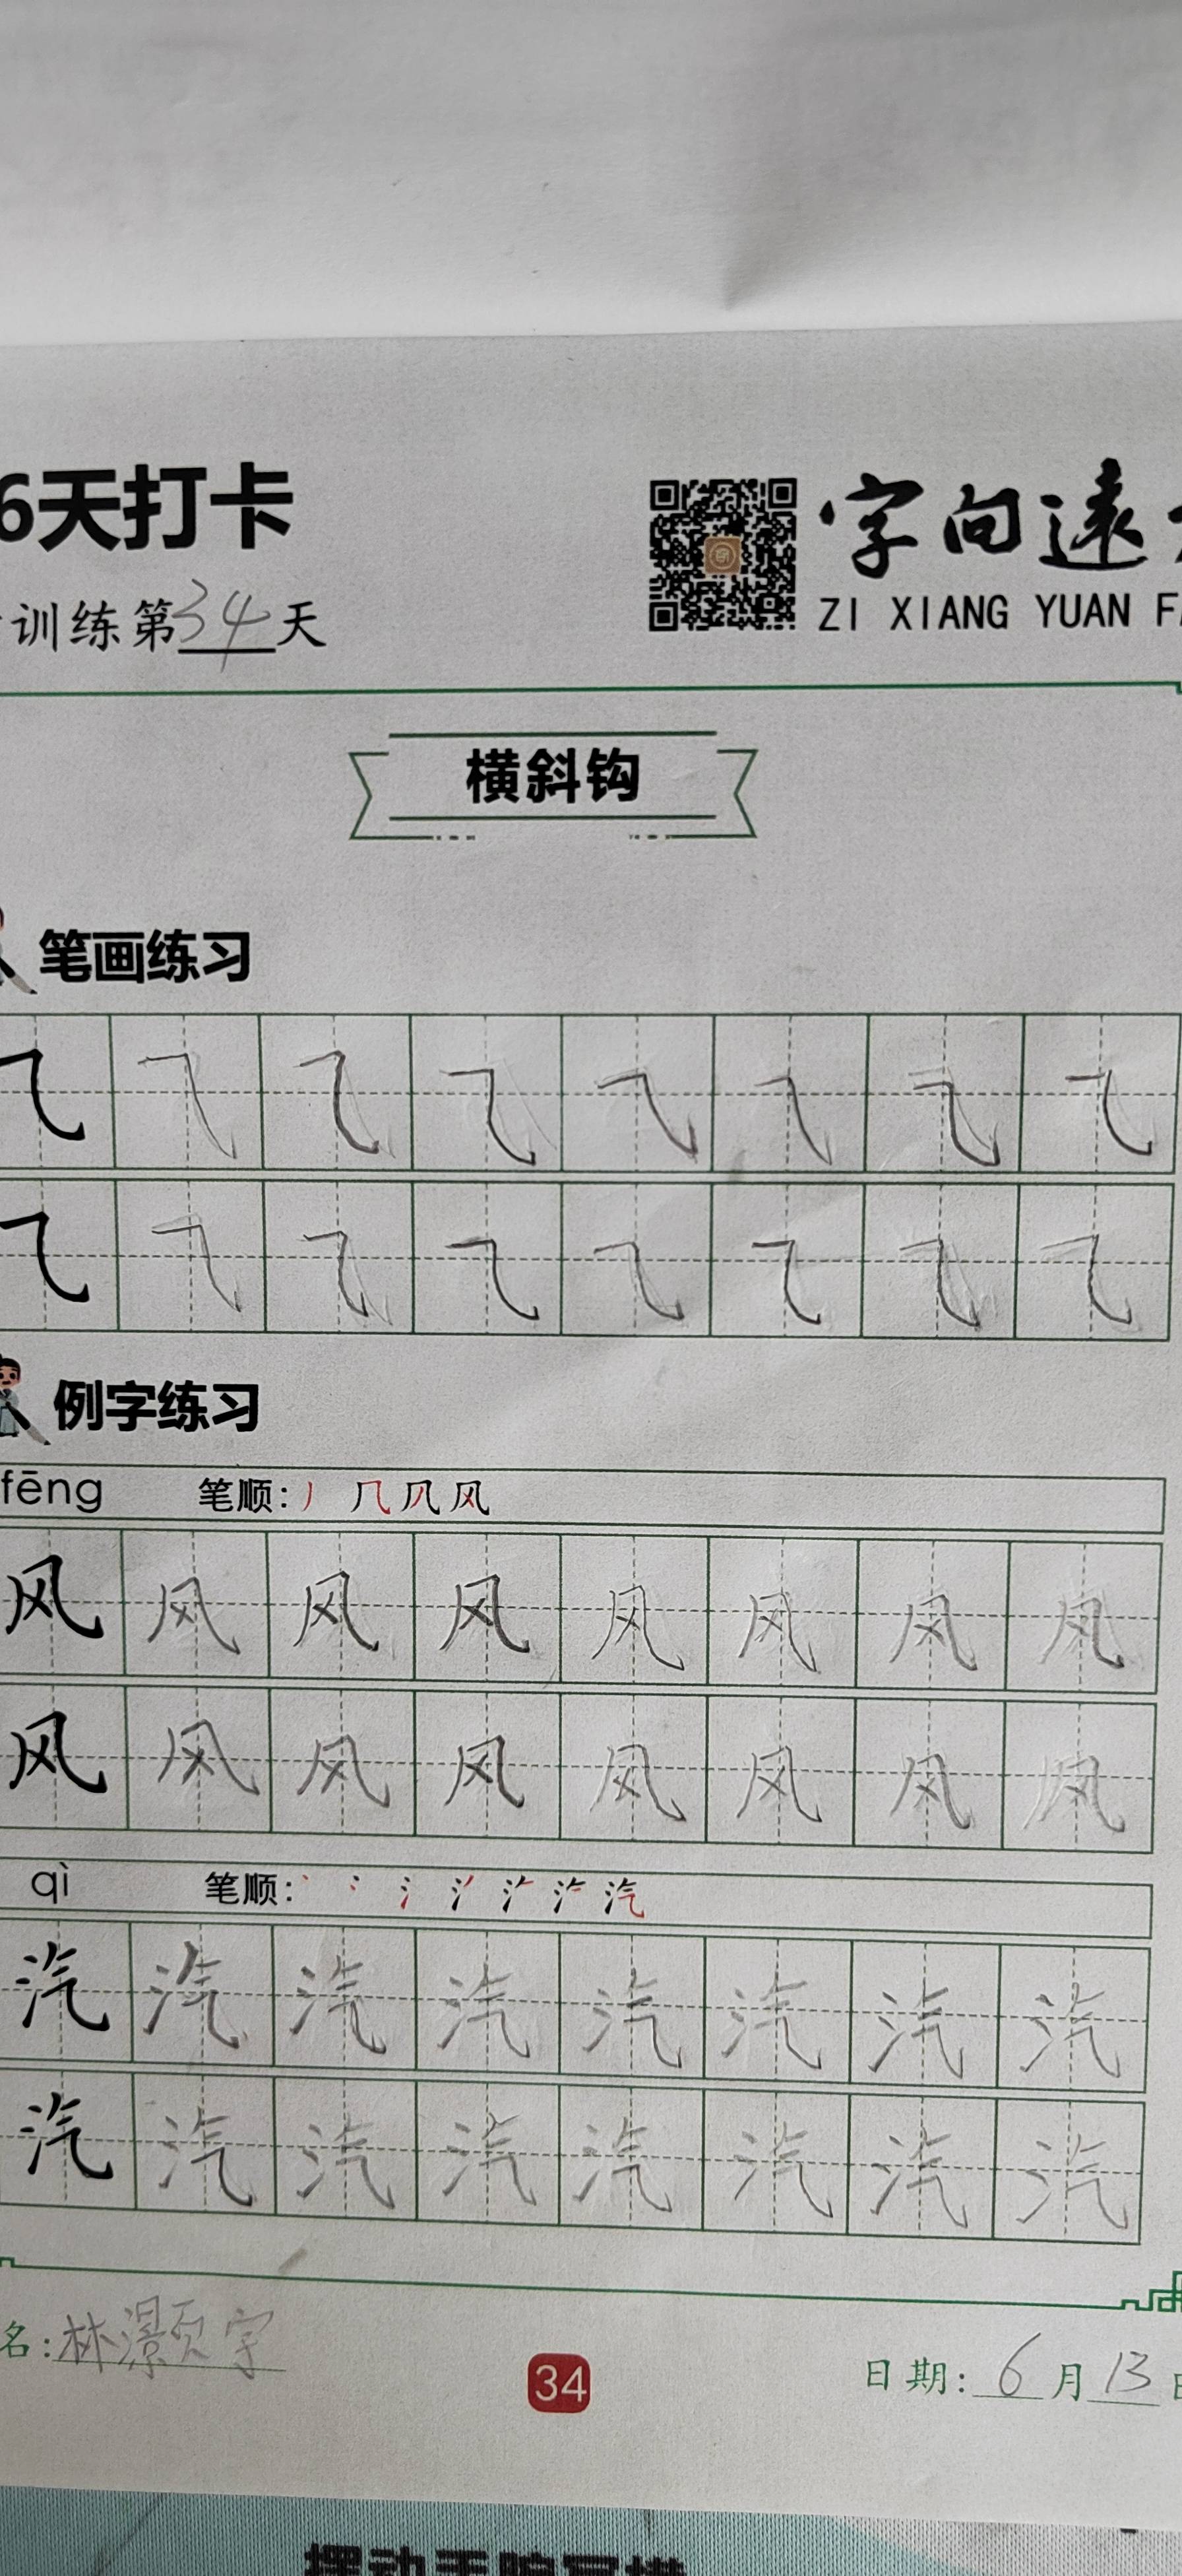 6天打卡
字向遠
训练第34天
ZI XIANG YUAN F
横斜钩
笔画练习
例字练习
fēng 笔顺:
风 风 风 风 风 风 风 风
风 风 风 风 风 风 风 风
qì 笔顺:
汽 汽 汽 汽 汽 汽 汽 汽
汽 汽 汽 汽 汽 汽 汽 汽
名:林灏宇
34
日期:6月13日